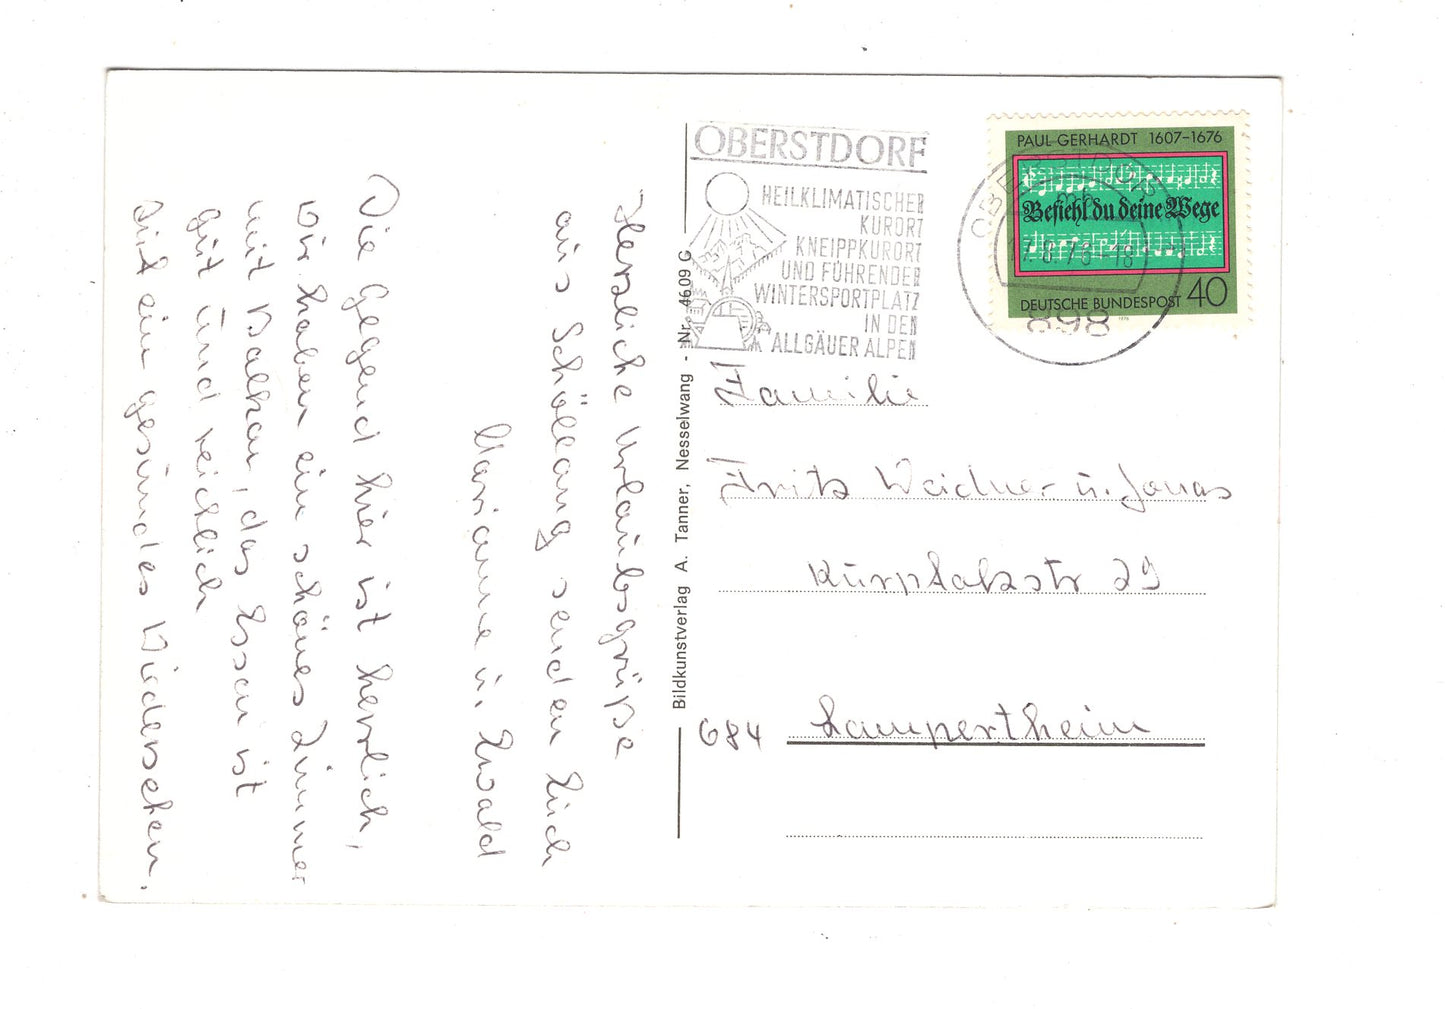 Herzliche Urlaubsgrüße
aus Schöllang senden Euch
Marianne u. Ewald
Die Gegend hier ist herrlich,
wir haben ein schönes Zimmer
mit Balkon, das Essen ist
gut und reichlich
Auf ein gesundes Wiedersehen.
Bildkunstverlag A. Tanner, Nesselwang - Nr. 4609 G
OBERSTDORF
HEILKLIMATISCHER
KURORT
KNEIPPKURORT
UND FÜHRENDER
WINTERSPORTPLATZ
IN DEN
ALLGÄUER ALPEN
OBERSTDORF
17.8.76-18
898
PAUL GERHARDT 1607-1676
Befiehl du deine Wege
DEUTSCHE BUNDESPOST 40
1976
Familie
Fritz Weidner u. Jonas
Kurpfalzstr 29
684 Lampertheim